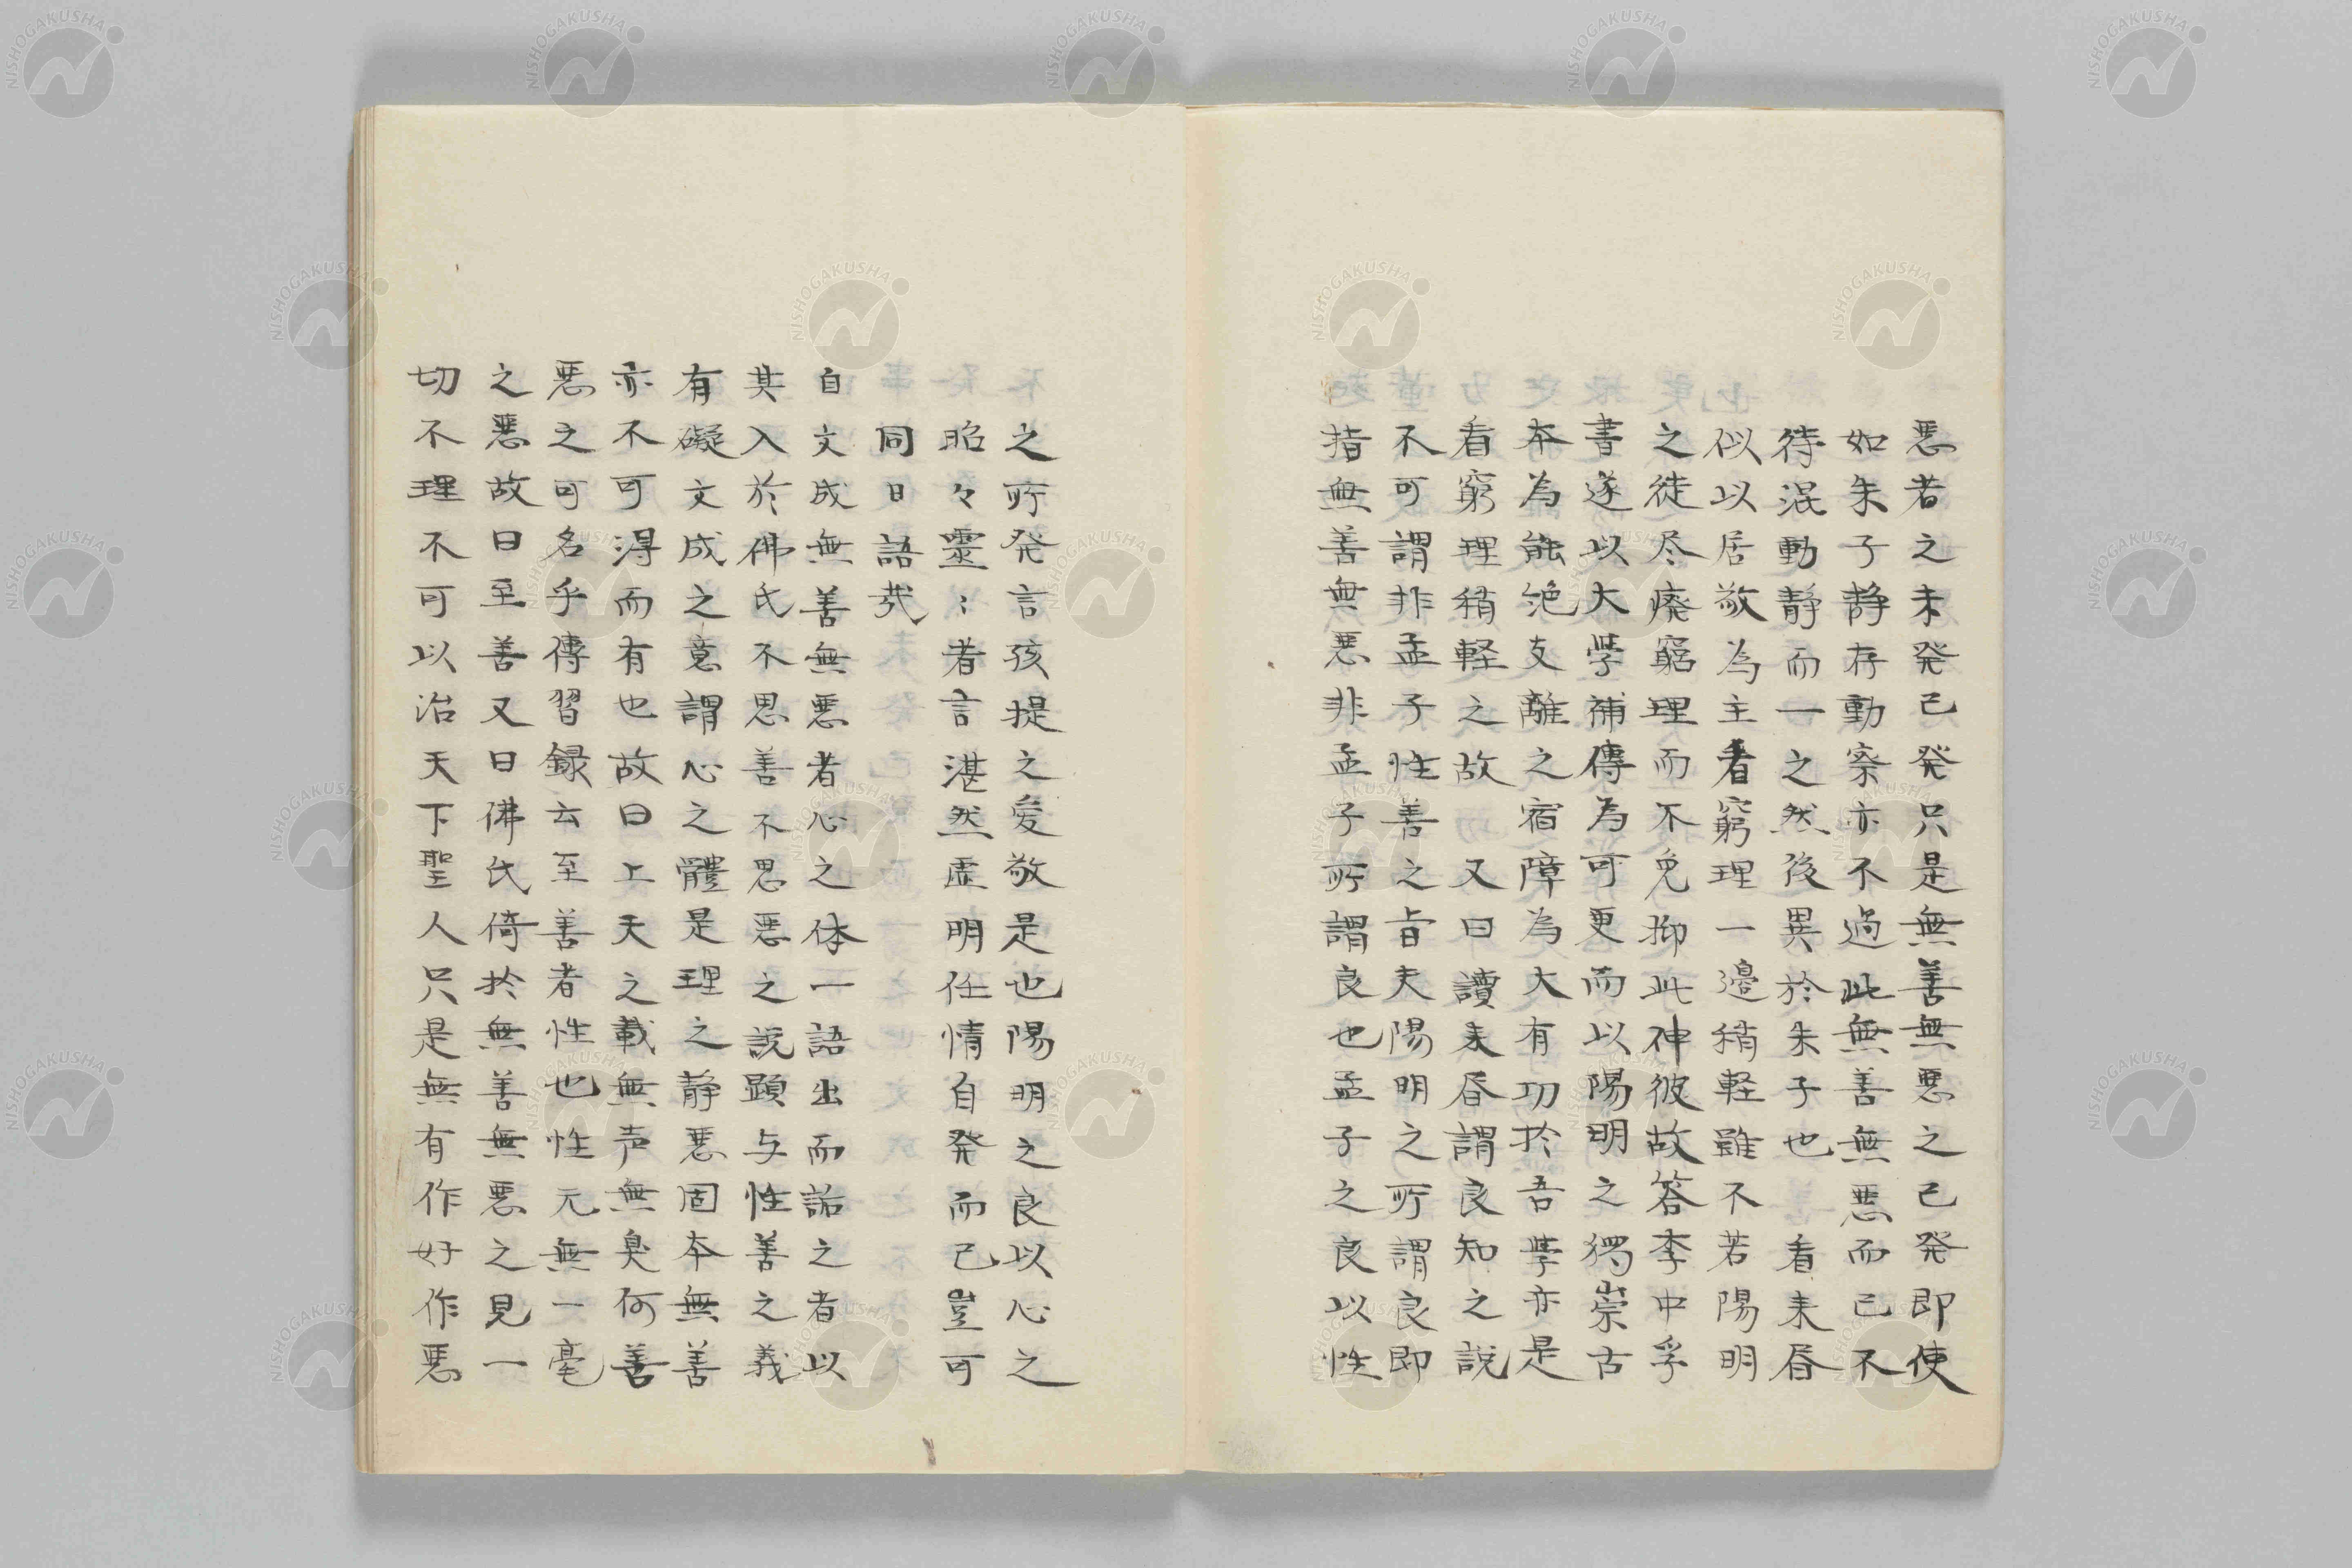 悪者之未発已発只是無善無悪之已発即使
如朱子静存動察亦不過此無善無悪而已不
待混動静而一之然後異於朱子也　看来昏
似以居敬為主看窮理一邊稍軽雖不若陽明
之徒尽廃窮理而不免抑此神彼故答李中孚
書遂以大学補傳為可更而以陽明之獨崇古
本為能絶支離之宿障為大有功於吾学亦是
看窮理稍軽之故　又曰讀来昏謂良知之説
不可謂非孟子性善之旨夫陽明之所謂良即
指無善無悪非孟子所謂良也孟子之良以性
之所発言孩提之愛敬是也陽明之良以心之
昭々靈〻者言湛然虚明任情自発而已豈可
同日語哉
自文成無善無悪者心之体一語出而詬之者以
其入於佛氏不思善不思悪之説顕与性善之義
有礙文成之意謂心之體是理之静悪固本無善
亦不可得而有也故曰上天之載無声無臭何善
悪之可名乎傳習録云至善者性也性元無一毫
之悪故曰至善又曰佛氏倚於無善無悪之見一
切不理不可以治天下聖人只是無有作好作悪
NISHOGAKUSHA